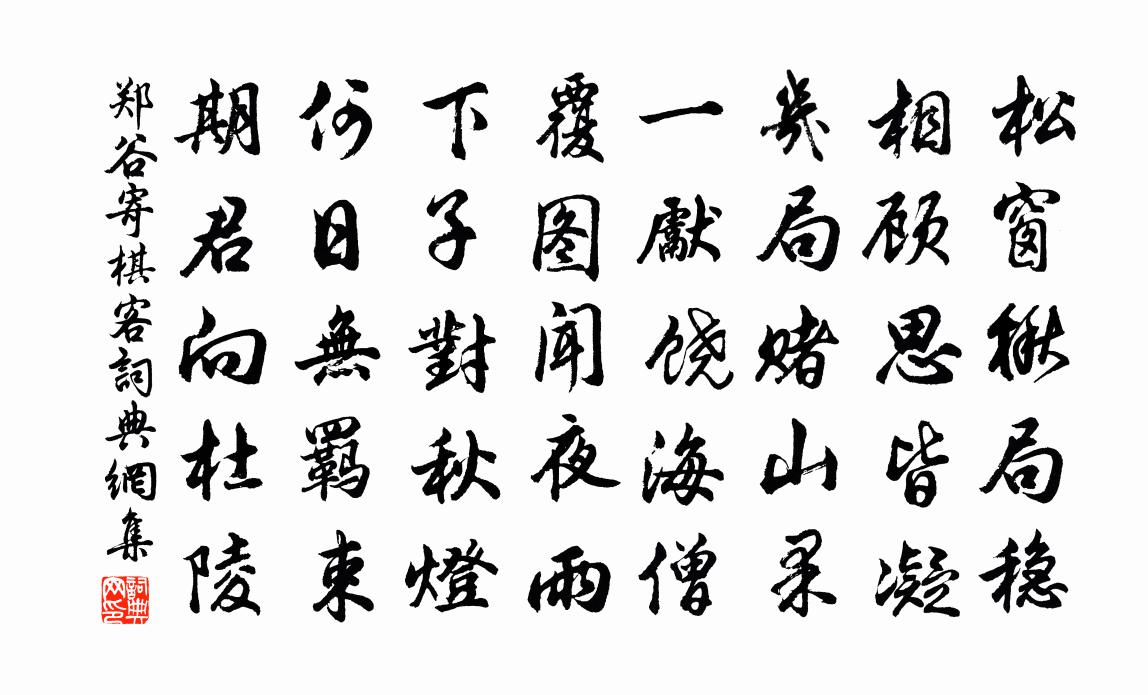 松窗楸局稳
相顾思皆凝
幾局赌山果
一獻饶海僧
覆图闻夜雨
下子對秋燈
何日無羈束
期君向杜陵
郑谷寄棋客詞典網集
詞典网印